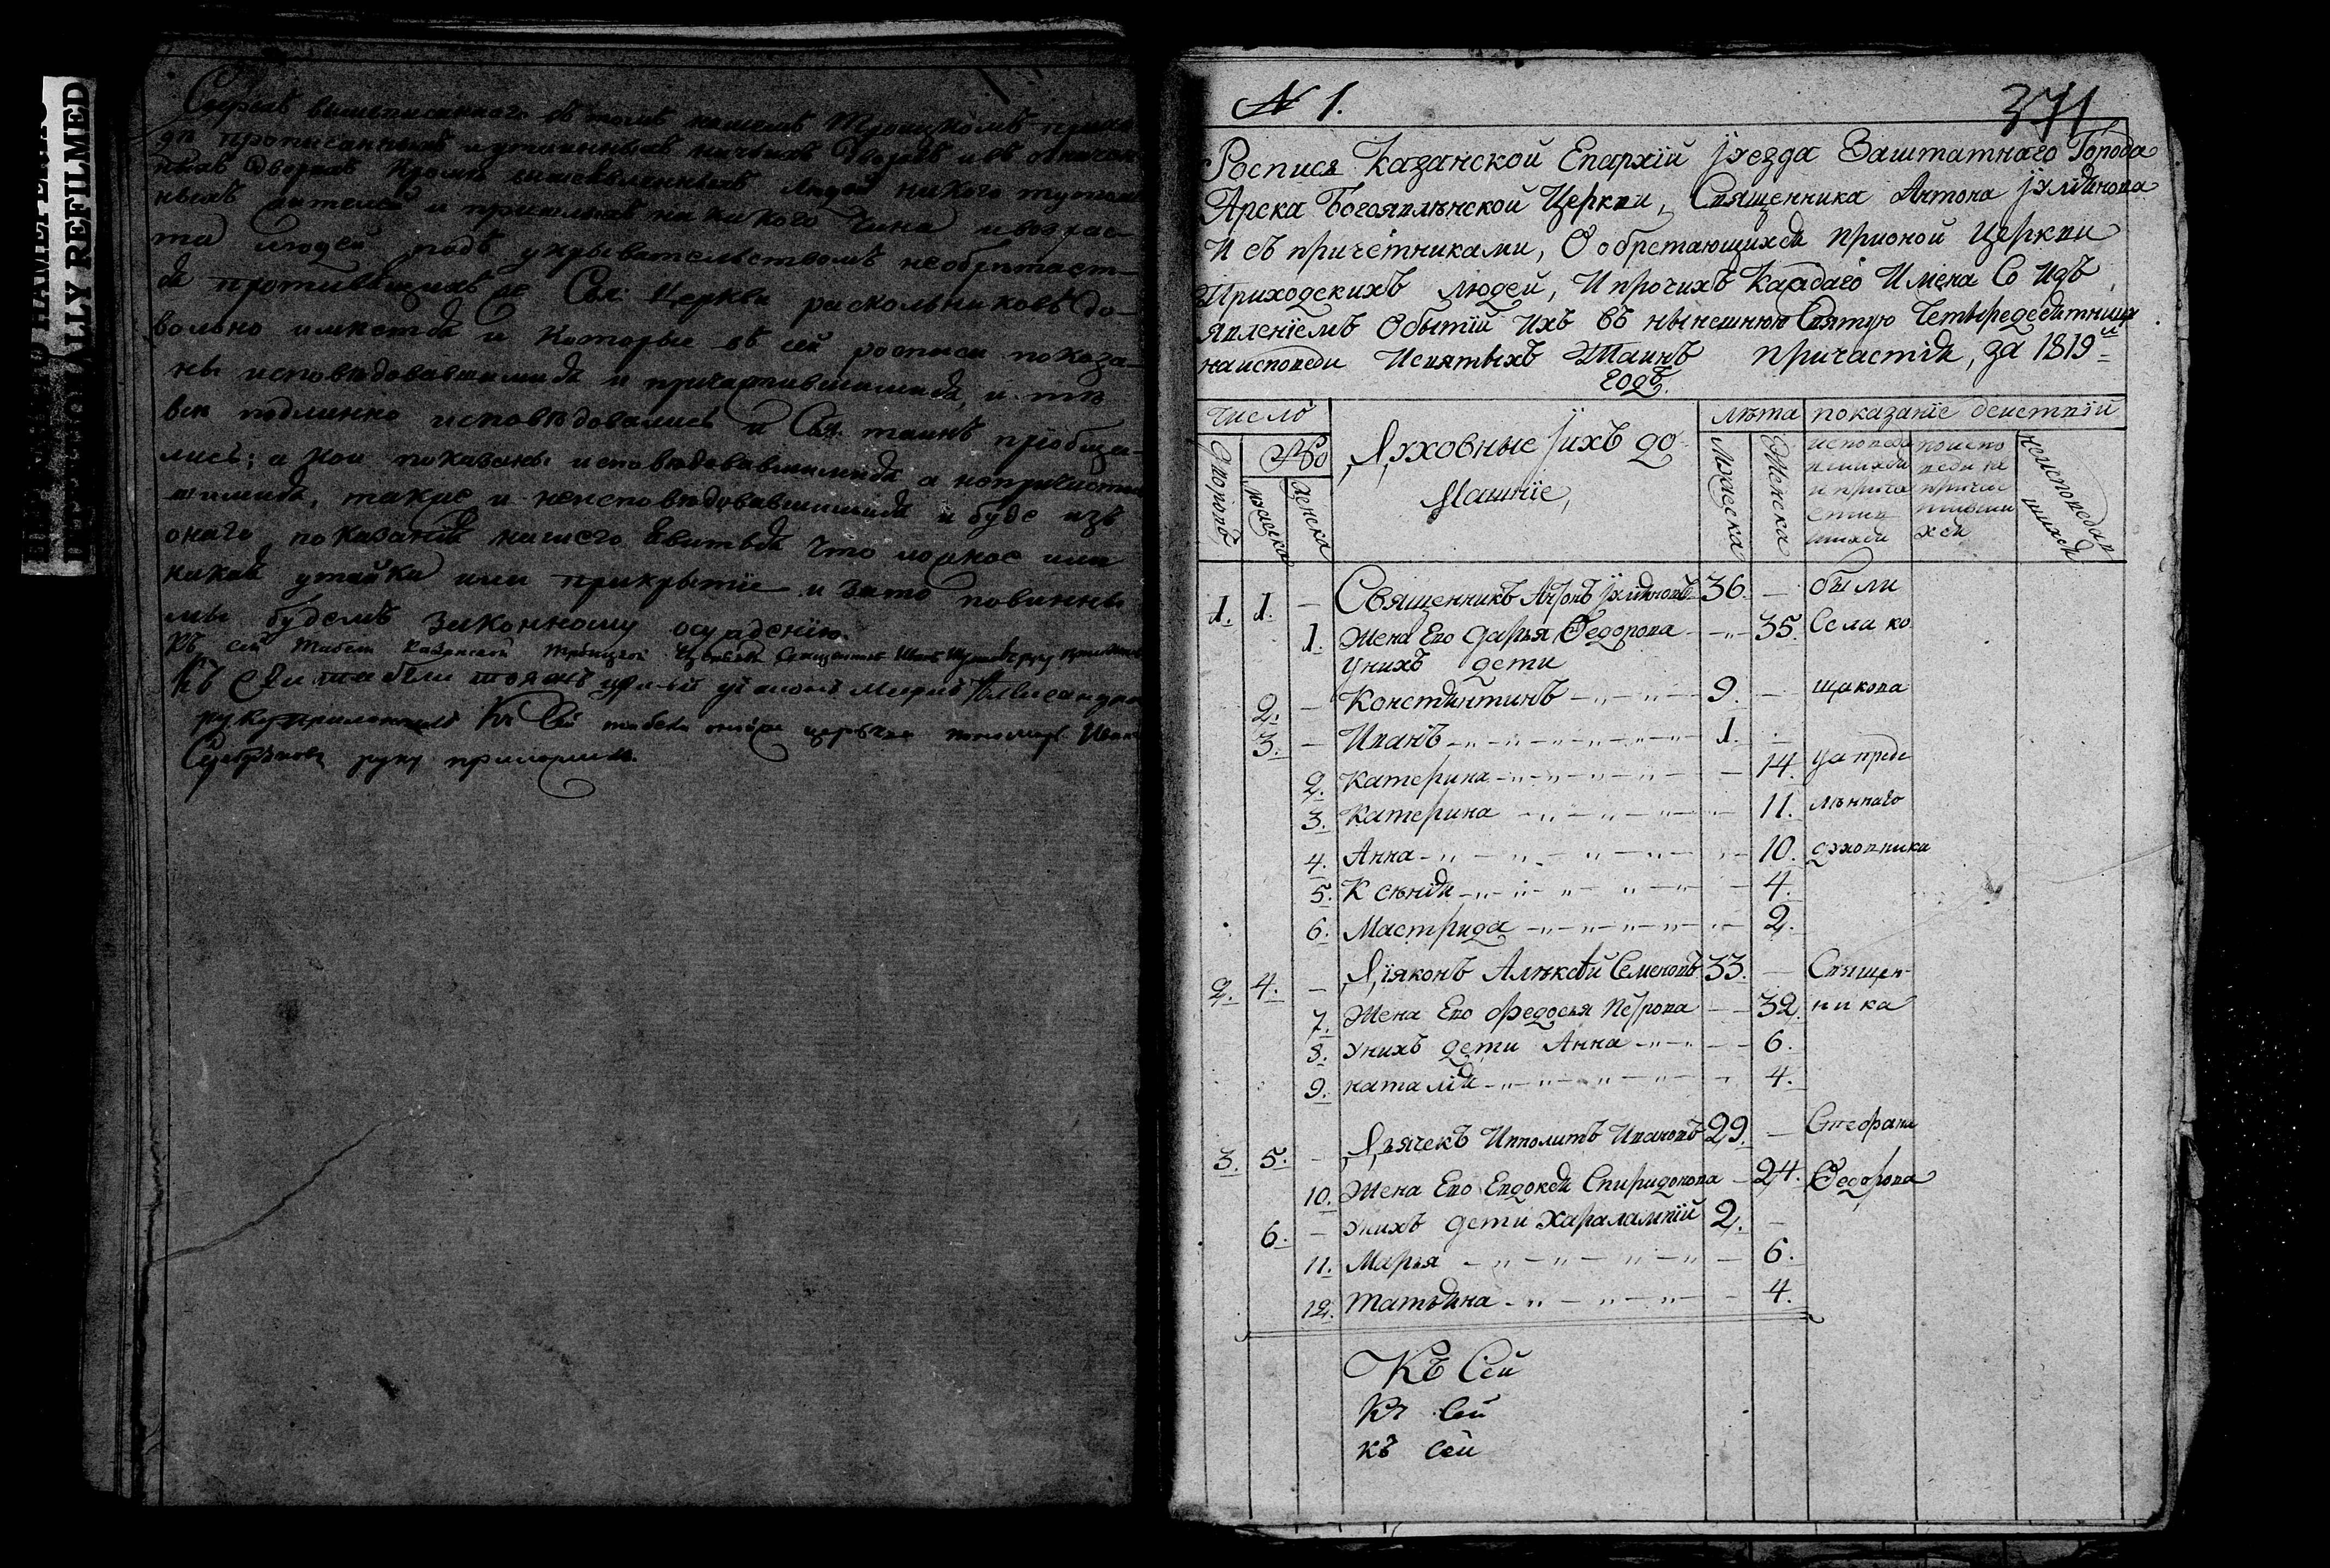 INTENTIONALLY REFILMED
Сверхъ вышеписаннаго въ томъ нашемъ Троицкомъ
прописанныхъ и дворовъ и въ
дворахъ кромѣ людей никого
жителей и пришлыхъ никакого чина и возрас-
та людей подъ укрывательствомъ необрѣтает-
ся противящихся Свя: Церкви раскольниковъ до-
вольно имеется и которые въ сей росписи показа-
ны исповѣдовавшимися и причастившимися, и тѣ
всѣ подлинно исповѣдовались и Свя. таинъ приобща-
лись; а кои показаны исповѣдовавшимися а непричасти-
вшимися, такие и неисповѣдовавшимися и буде изъ
онаго показанія нашего явиться что ложное или
какая утайка или прикрытіе и зато повинны
мы будемъ законному осуждению.
Къ сей табели Казанской Троицкой Церкви Священникъ руку приложилъ
Къ сей табели тояжъ
руку приложилъ Къ сей табели церкви пономарь Иван
руку приложилъ.
№ 1.
371
Роспись Казанской Епархїи уезда Заштатнаго Города
Арска Богоявлѣнской Церкви, Священника Антона
И съ причетниками, О обретающихся прионой церкви
Приходскихъ людей, И прочихъ Каждаго Имена Со изъ
явленїемъ Обытїи ихъ въ нынешнюю Святую Четыредесятницу
наисповеди Исвятыхъ Таинъ причастія, за 1819й
годъ.
число
лѣта
показанїе деиствїй
Дворовъ
мужеска
женска
Духовные ихъ до
машнїе,
Мужеска
Женска
исповеда
вшихся
и прича
стив
шихся
поиспо
веди не
причас
тивши
хся
неисповедав
шихся
1. 1. – Священникъ Антонъ 36. – были
1. Жена Ево дарья Федорова – 35. Села ко
унихъ дети
2. – Константинъ 9. – щакова
3. – Иванъ 1. –
2. Катерина – 14. упразд
3. Катерина – 11.
4. Анна – 10.
5. Ксѣнія – 4.
6. Мастрида – 2.
2. 4. – Дїяконъ Алѣксѣй Семеновъ 33. – Священ-
7. Жена Ево Федосья Петрова – 32. ника
8. унихъ дети Анна – 6.
9. наталія – 4.
3. 5. – Дьячекъ Ипполитъ Ивановъ 29. – Стефана
10. Жена Ево Евдокся Спиридонова – 24. Федорова
6. – Унихъ дети Харалампїй 2. –
11. Марья – 6.
12. Татьяна – 4.
Къ Сей
Къ Сей
къ сей